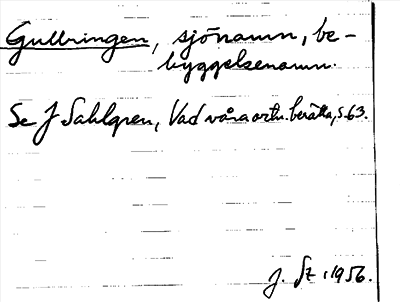 Gullringen, sjönamn, be-
byggelsenamn.
Se J Sahlgren, Vad våra ortn. berätta, s. 63.
J. Sz. 1956.